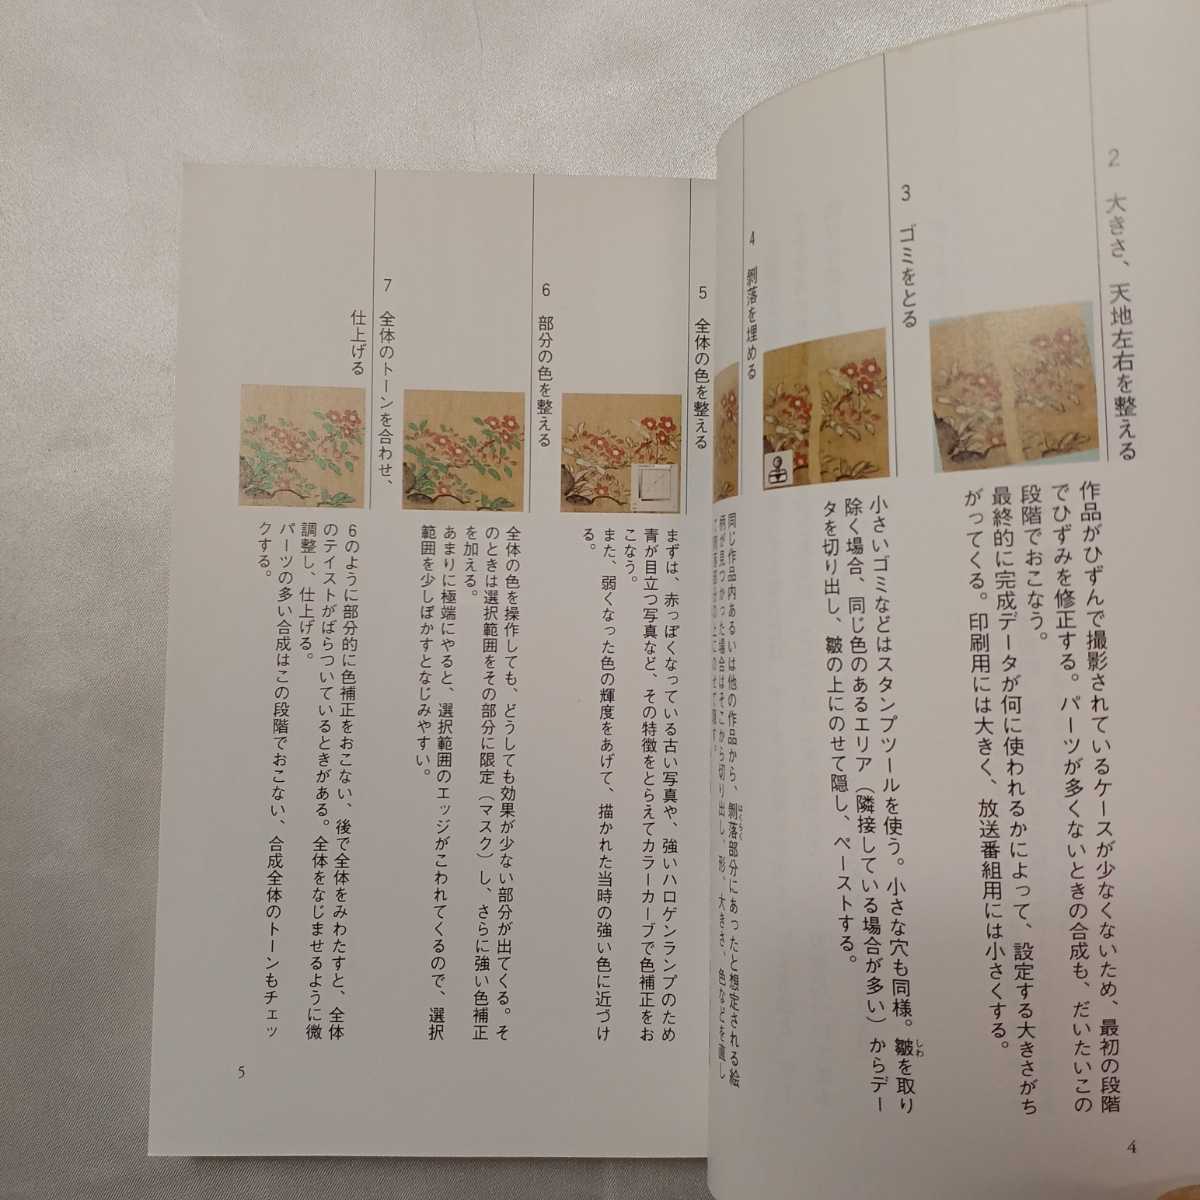 2 大きさ、天地左右を整える
作品がひずんで撮影されているケースが少なくないため、最初の段階
でひずみを修正する。パーツが多くないときの合成も、だいたいこの
段階でおこなう。
最終的に完成データが何に使われるかによって、設定する大きさがち
がってくる。印刷用には大きく、放送番組用には小さくする。
3 ゴミをとる
小さいゴミなどはスタンプツールを使う。小さな穴も同様。皺を取り
しわ
除く場合、同じ色のあるエリア（隣接している場合が多い）からデー
タを切り出し、皺の上にのせて隠し、ペーストする。
4 剝落を埋める
同じ作品内あるいは他の作品から、剝落部分にあったと想定される絵
はくらく
柄が見つかった場合はそこから切り出し、形、大きさ、色などを直し
て剝落部分の上にのせて隠す。
4
5 全体の色を整える
まずは、赤っぽくなっている古い写真や、強いハロゲンランプのため
青が目立つ写真など、その特徴をとらえてカラーカーブで色補正をお
こなう。
また、弱くなった色の輝度をあげて、描かれた当時の強い色に近づけ
る。
6 部分の色を整える
全体の色を操作しても、どうしても効果が少ない部分が出てくる。そ
のときは選択範囲をその部分に限定（マスク）し、さらに強い色補正
を加える。
あまりに極端にやると、選択範囲のエッジがこわれてくるので、選択
範囲を少しぼかすとなじみやすい。
7 全体のトーンを合わせ、
仕上げる
6のように部分的に色補正をおこない、後で全体をみわたすと、全体
のテイストがばらついているときがある。全体をなじませるように微
調整し、仕上げる。
パーツの多い合成はこの段階でおこない、合成全体のトーンもチェッ
クする。
5